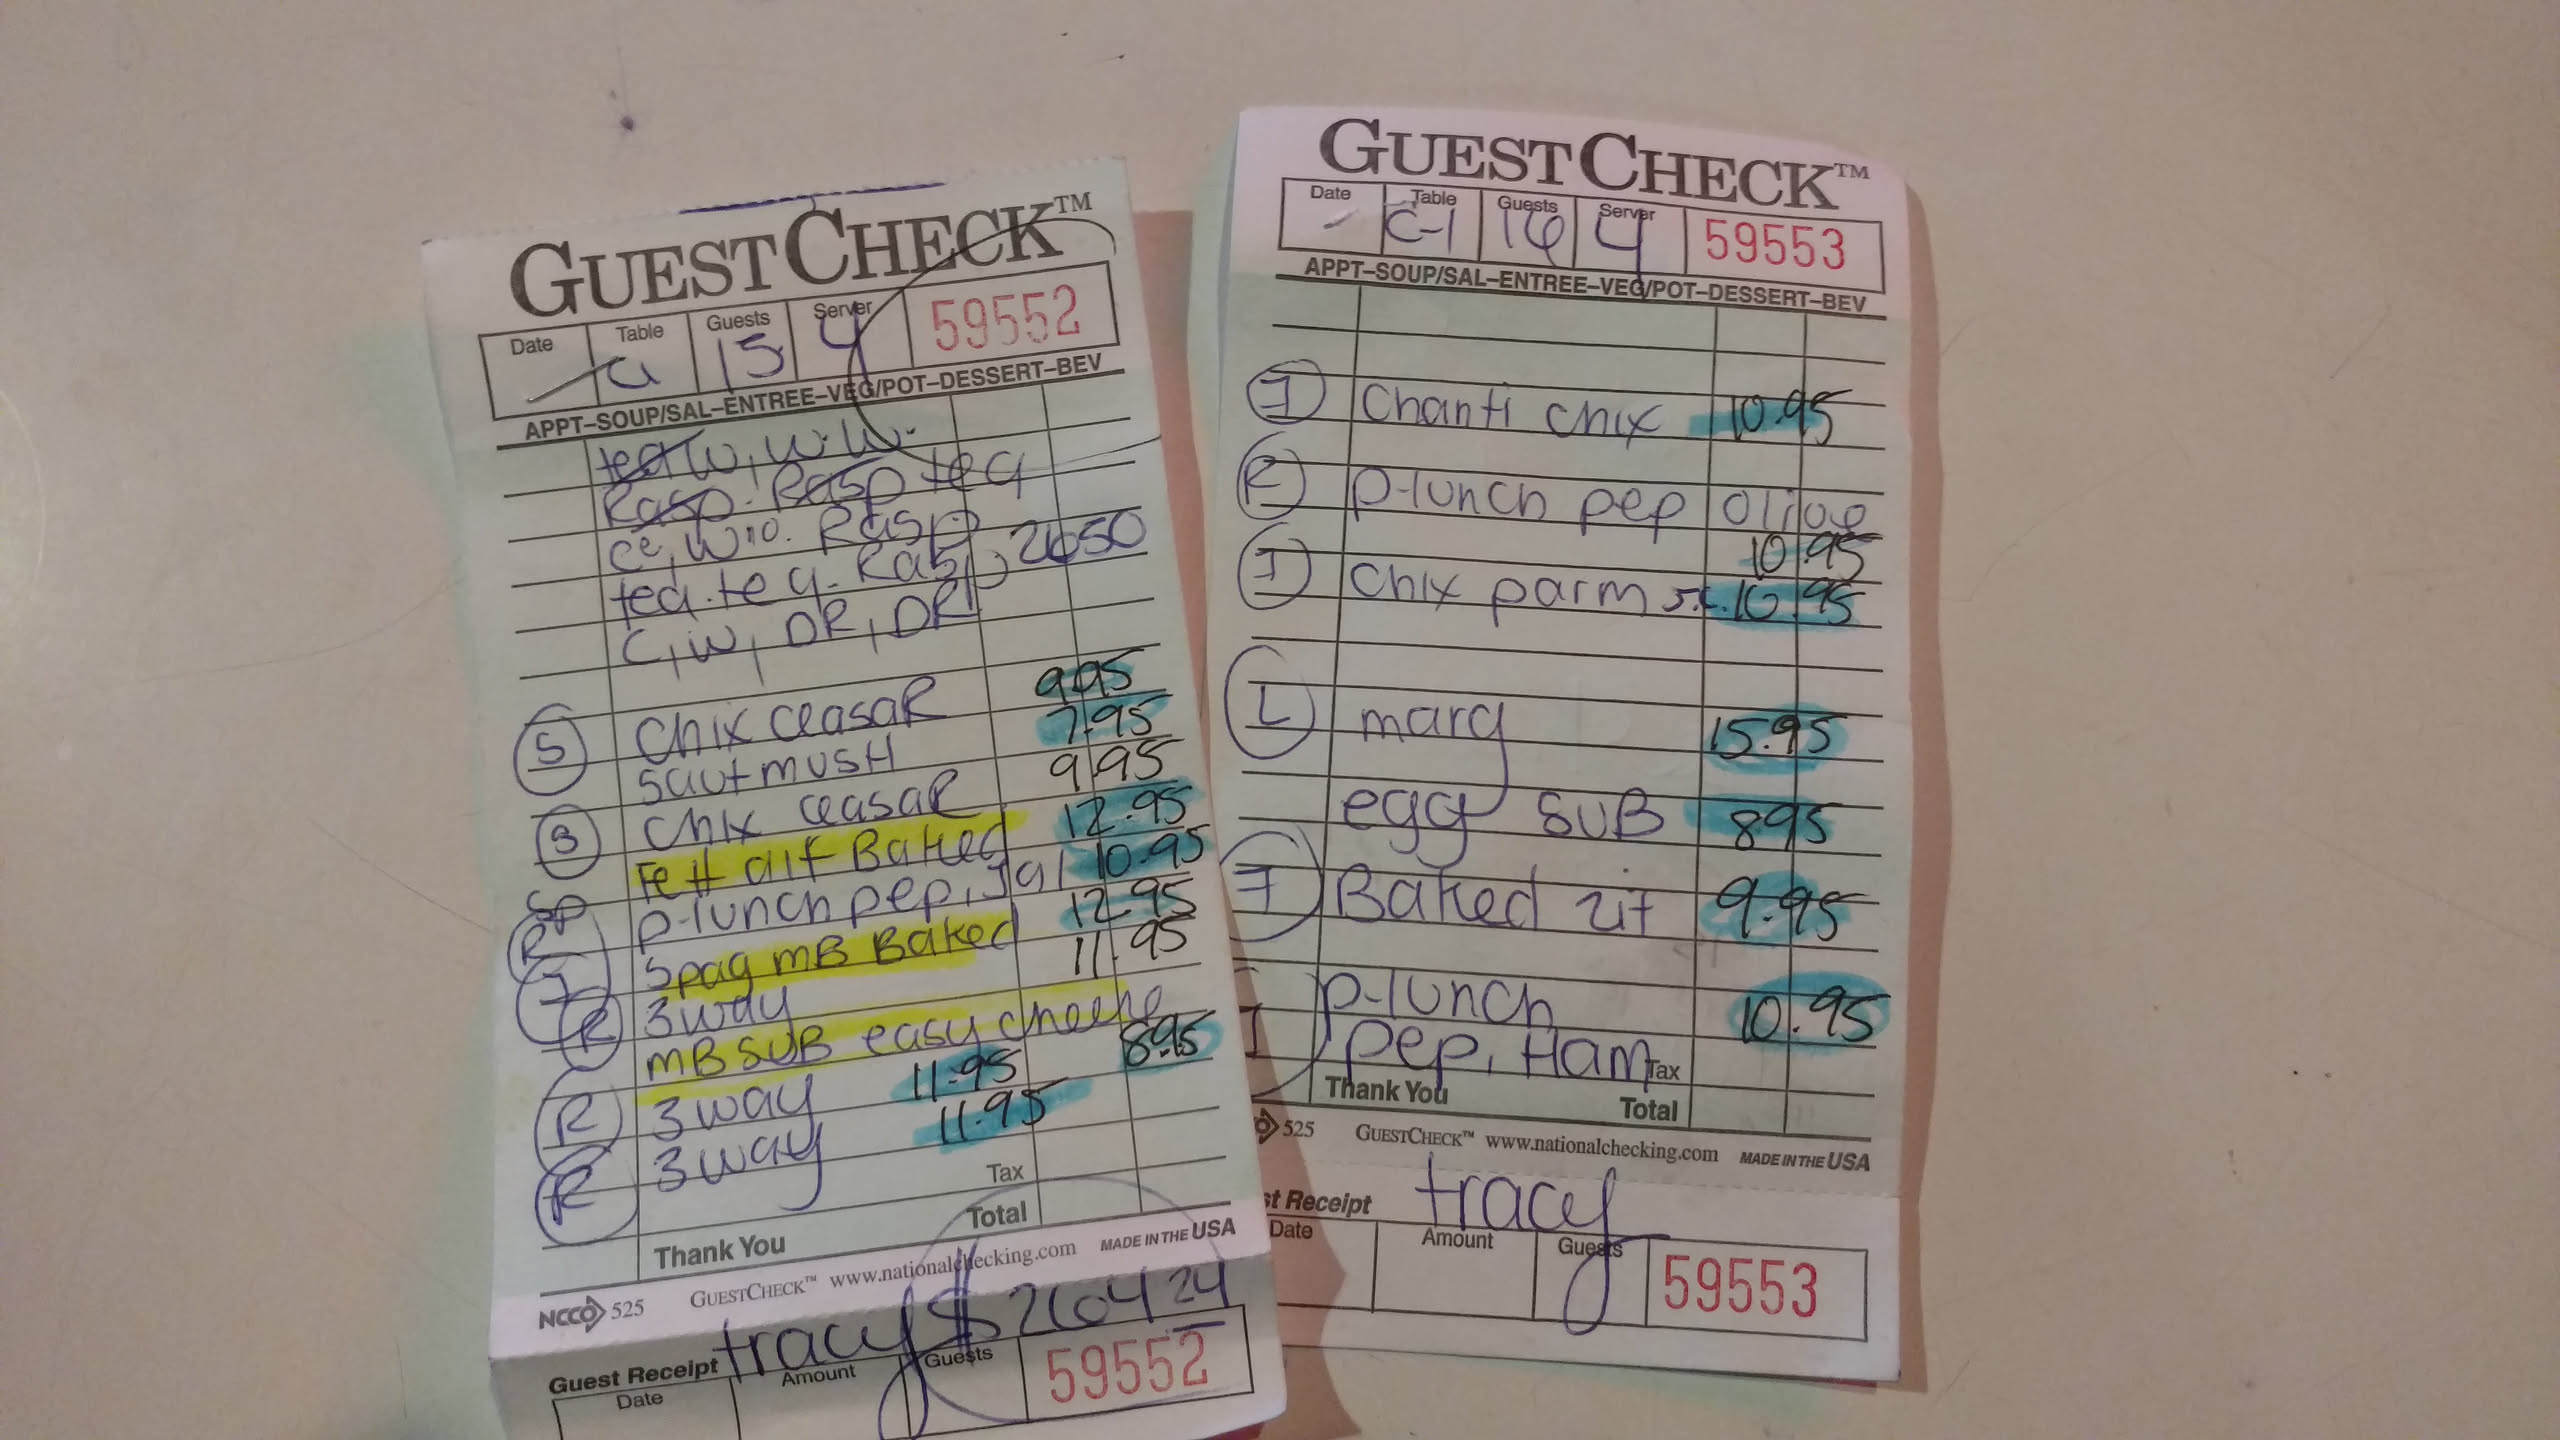 GUESTCHECK™
Date Table Guests Server
a 15 4 59552
APPT–SOUP/SAL–ENTREE–VEG/POT–DESSERT–BEV
tea W, W. W.
Rasp. Rasp tea
ce, W10. Rasp
tea. tea. Rasp 2650
C, W, DR, DR
9.95
S Chix ceasaR 7.95
saut musH 9.95
S Chix ceasaR 12.95
SP Fett alf Baked 10.95
R p-lunch pep, Jal 12.95
J spag mB Baked 11.95
R 3way
mB SUB easy cheese 8.95
R 3way 11.95
R 3way 11.95
Tax
Total
Thank You
GUESTCHECK™ www.nationalchecking.com MADE IN THE USA
NCCO 525
tracy $26424
Guest Receipt
Date Amount Guests 59552
GUESTCHECK™
Date Table Guests Server
C-1 16 4 59553
APPT–SOUP/SAL–ENTREE–VEG/POT–DESSERT–BEV
J Chanti chix 10.95
R p-lunch pep olive
10.95
J Chix parm 10.95
L marg 15.95
egg SUB 895
J Baked zit 9.95
p-lunch 10.95
pep, Ham
Tax
Thank You
Total
525 GUESTCHECK™ www.nationalchecking.com MADE IN THE USA
st Receipt tracy
Date Amount Guests 59553